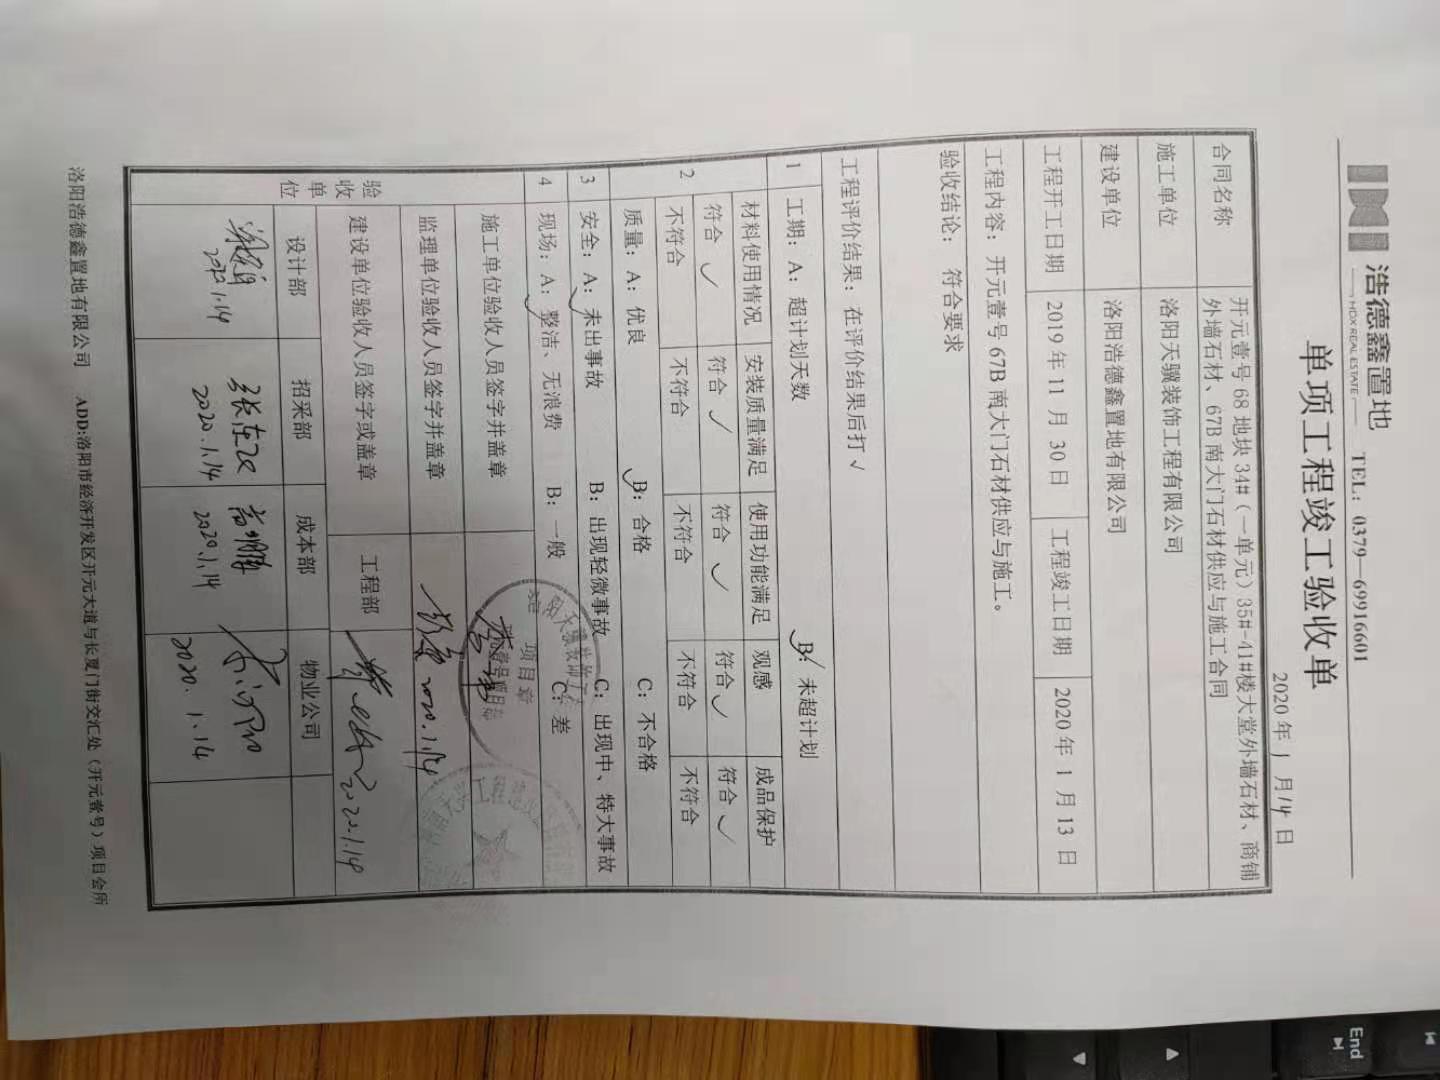 浩德鑫置地
HDX REAL ESTATE
TEL：0379—69916601
单项工程竣工验收单
2020 年 1 月 14 日
合同名称
开元壹号 68 地块 34#（一单元）35#-41#楼大堂外墙石材、商铺
外墙石材、67B 南大门石材供应与施工合同
施工单位 洛阳天骥装饰工程有限公司
建设单位 洛阳浩德鑫置地有限公司
工程开工日期 2019 年 11 月 30 日 工程竣工日期 2020 年 1 月 13 日
工程内容：开元壹号 67B 南大门石材供应与施工。
验收结论： 符合要求
工程评价结果：在评价结果后打 √
1 工期：A：超计划天数 B：√ 未超计划
2 材料使用情况 安装质量满足 使用功能满足 观感 成品保护
符合 √ 符合 √ 符合 √ 符合 √ 符合 √
不符合 不符合 不符合 不符合 不符合
质量：A：优良 B：√ 合格 C：不合格
3 安全：A：√ 未出事故 B：出现轻微事故 C：出现中、特大事故
4 现场：A：√ 整洁、无浪费 B：一般 C：差
验收单位
施工单位验收人员签字并盖章
项目章
监理单位验收人员签字并盖章 2020.1.14
建设单位验收人员签字或盖章 工程部 2020.1.14
设计部 招采部 成本部 物业公司
2020.1.14 2020.1.14 2020.1.14 2020.1.14
洛阳浩德鑫置地有限公司 ADD:洛阳市经济开发区开元大道与长夏门街交汇处（开元壹号）项目会所
End